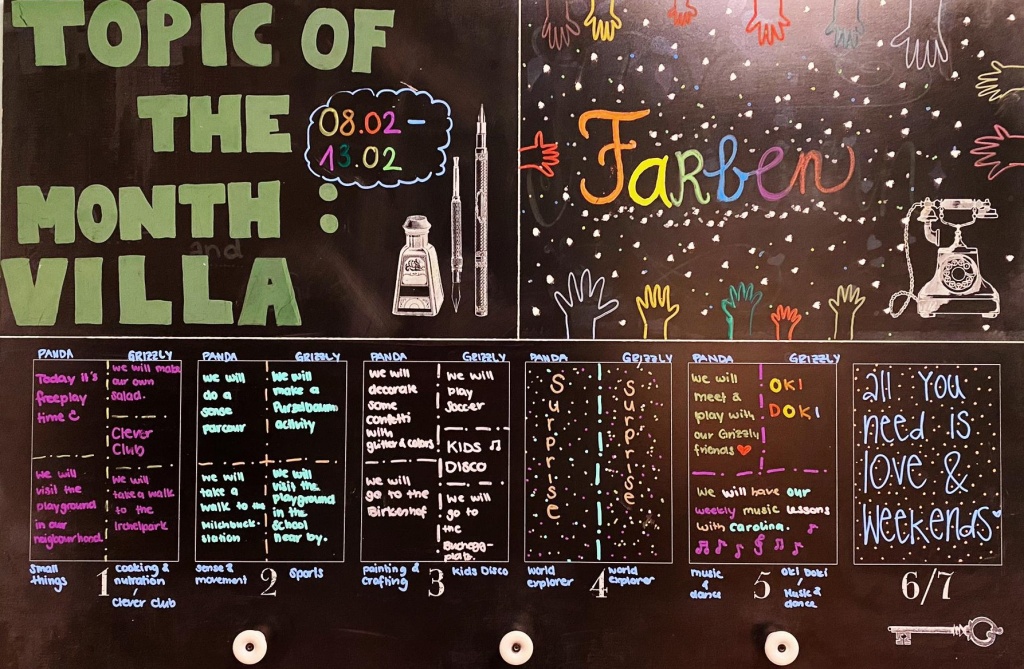 TOPIC OF
THE
MONTH :
VILLA
and
08.02 –
13.02
Farben
PANDA
Today it's
freeplay
time
we will
visit the
playground
in our
neigbourhood.
GRIZZLY
we will make
our own
salad.
Clever
Club
we will
take a walk
to the
Irchelpark
small
things
1
cooking &
nutrition
/
Clever club
PANDA
we will
do a
sense
parcour
we will
take a
walk to the
Milchbuck-
station
GRIZZLY
we will
make a
Purzelbaum
activity
we will
visit the
playground
in the
School
near by.
sense &
movement
2
Sports
PANDA
we will
decorate
some
confetti
with
glitter & colors
we will
go to the
Birkenhof
GRIZZLY
we will
play
Soccer
KIDS
DISCO
we will
go to
the
Bucheggplatz.
painting &
crafting
3
Kids Disco
PANDA
Surprise
GRIZZLY
Surprise
world
explorer
4
world
explorer
PANDA
we will
meet &
play with
our Grizzly
friends ♥
GRIZZLY
OKI
DOKI
we will have our
weekly music lessons
with Carolina.
music
&
dance
5
Oki Doki
/
Music &
dance
all you
need is
love &
weekends
6/7